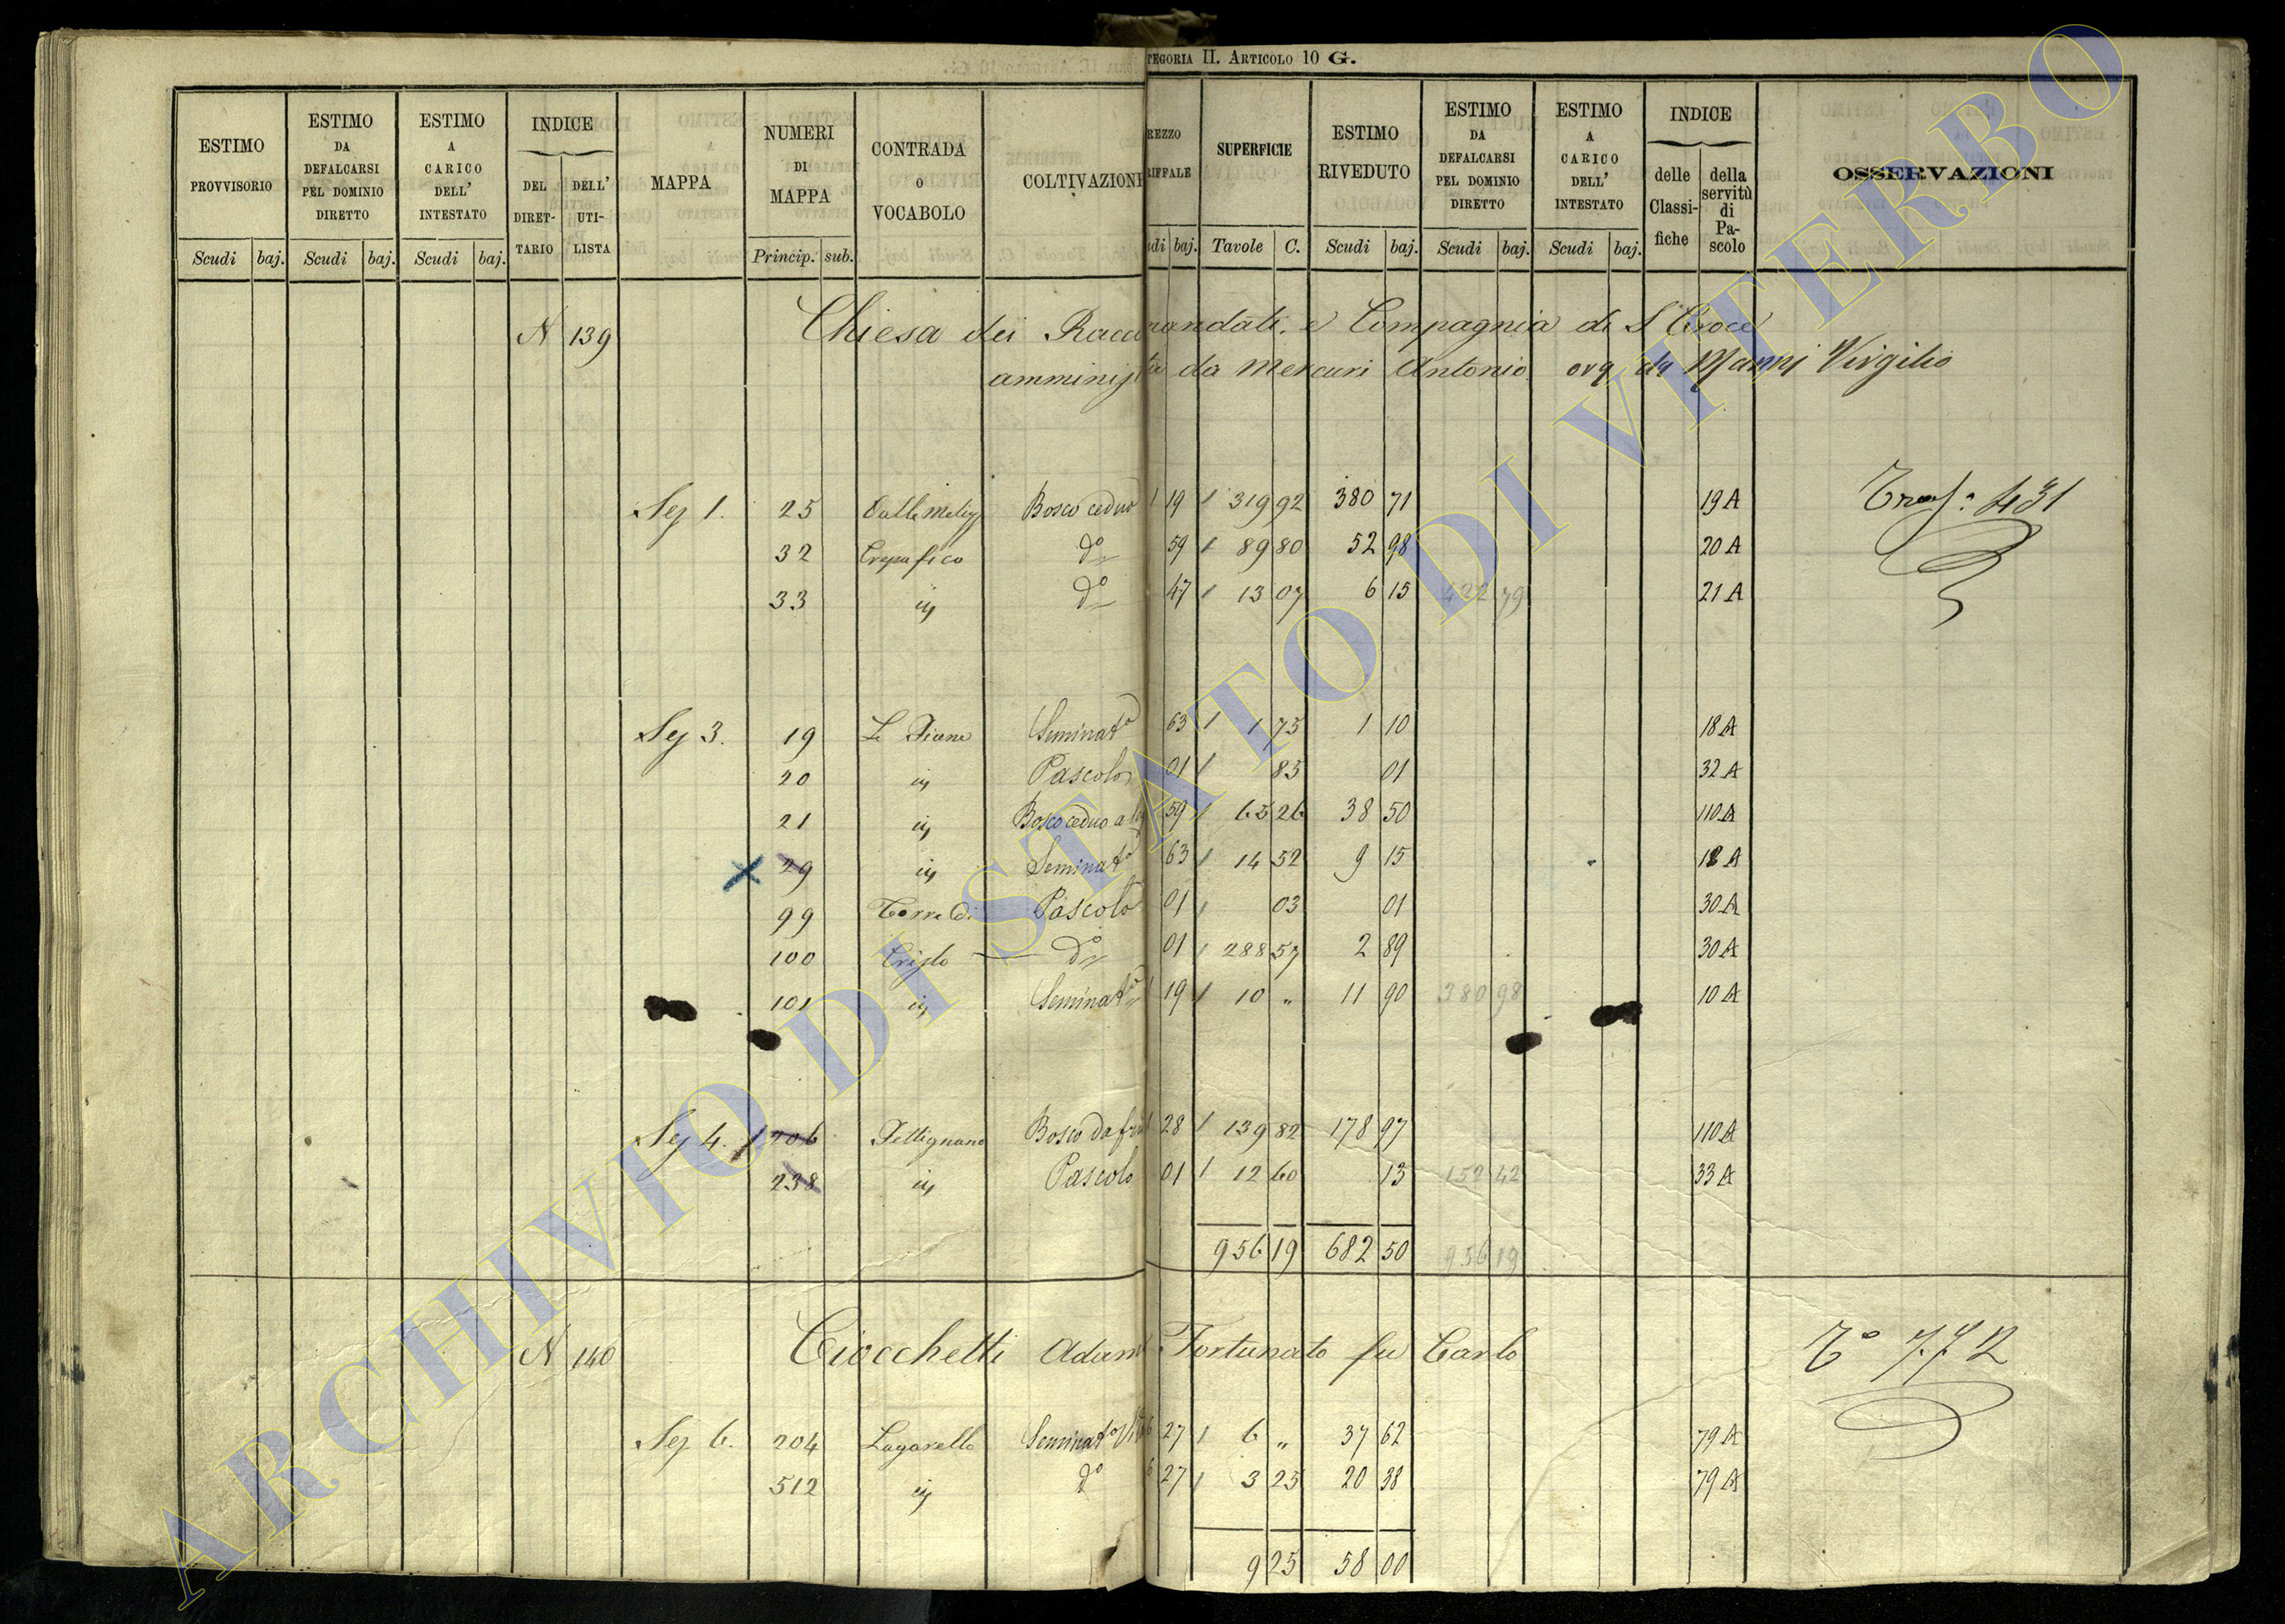 TEGORIA II. ARTICOLO 10 G.
ESTIMO PROVVISORIO Scudi baj.
ESTIMO DA DEFALCARSI PEL DOMINIO DIRETTO Scudi baj.
ESTIMO A CARICO DELL' INTESTATO Scudi baj.
INDICE DEL DIRET-TARIO DELL' UTI-LISTA
MAPPA
NUMERI DI MAPPA Princip. sub.
CONTRADA O VOCABOLO
COLTIVAZIONI
REZZO RIFFALE udi baj.
SUPERFICIE Tavole C.
ESTIMO RIVEDUTO Scudi baj.
ESTIMO DA DEFALCARSI PEL DOMINIO DIRETTO Scudi baj.
ESTIMO A CARICO DELL' INTESTATO Scudi baj.
INDICE delle Classi-fiche della servitù di Pa-scolo
OSSERVAZIONI
N 139 Chiesa dei Raccomandati, e Compagnia di S Croce
amministta da Mercuri Antonio ora da Manni Virgilio
Sez 1. 25 Bosco ceduo 1 19 / 319 92 380 71 19 A 431
32 Crepafico do 59 / 89 80 52 98 20 A
33 in do 47 / 13 07 6 15 422 79 21 A
Sez 3. 19 Le Piane Seminato 63 / 1 75 1 10 18 A
20 in Pascolo 01 / 85 01 32 A
21 in Bosco ceduo a 59 / 65 26 38 50 110 A
X 29 in Seminato 63 / 14 52 9 15 18 A
99 Torre di Pascolo 01 / 03 01 30 A
100 Cristo do 01 / 288 57 2 89 30 A
101 in Seminato 1 19 / 10 " 11 90 380 98 10 A
Sez 4. / 206 Pettignano Bosco da fru 1 28 / 139 82 178 97 110 A
238 in Pascolo 01 / 12 60 13 152 42 33 A
956 19 682 50 956 19
N 140 Ciocchetti Adamo Fortunato fu Carlo
Sez 6. 204 Lagarello Seminato Vit 6 27 / 6 " 37 62 79 A
512 in do 6 27 / 3 25 20 38 79 A
9 25 58 00
ARCHIVIO DI STATO DI VITERBO